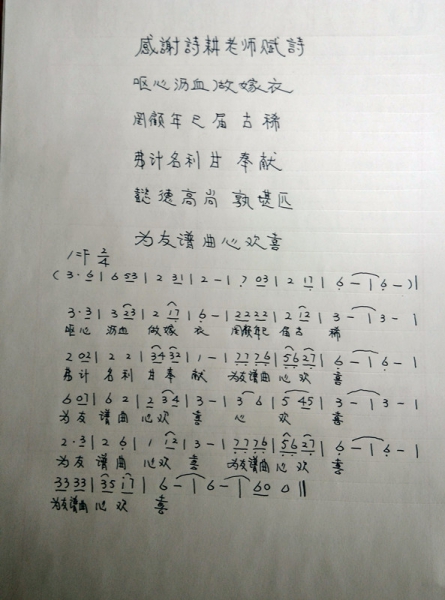 感謝詩耕老师赋詩
呕心沥血做嫁衣
罔顧年已届古稀
弗计名利甘奉献
懿德高尚孰堪匹
为友谱曲心欢喜
1=F 2/4
(3·6|6 53|2 31|2-|7 03|2 17|6-|6-)|
3·3|3 23|2 17|6-|2222|2 12|3-|3-|
呕心 沥血 做嫁 衣 罔顧年已 届古 稀
2 02|2 2|34 32|1-|7776|56 27|6-|6-|
弗计 名利 甘奉 献 为友谱曲 心欢 喜
6 07|6 2|2 34|3-|3 6|5 45|3-|3-|
为友 谱曲 心欢 喜 心 欢 喜
2·3|2 6|1 12|3-|7776|56 27|6-|6-|
为友 谱曲 心欢 喜 为友谱曲 心欢 喜
33 33|35 17|6-|6-|60 0‖
为友谱曲 心欢 喜